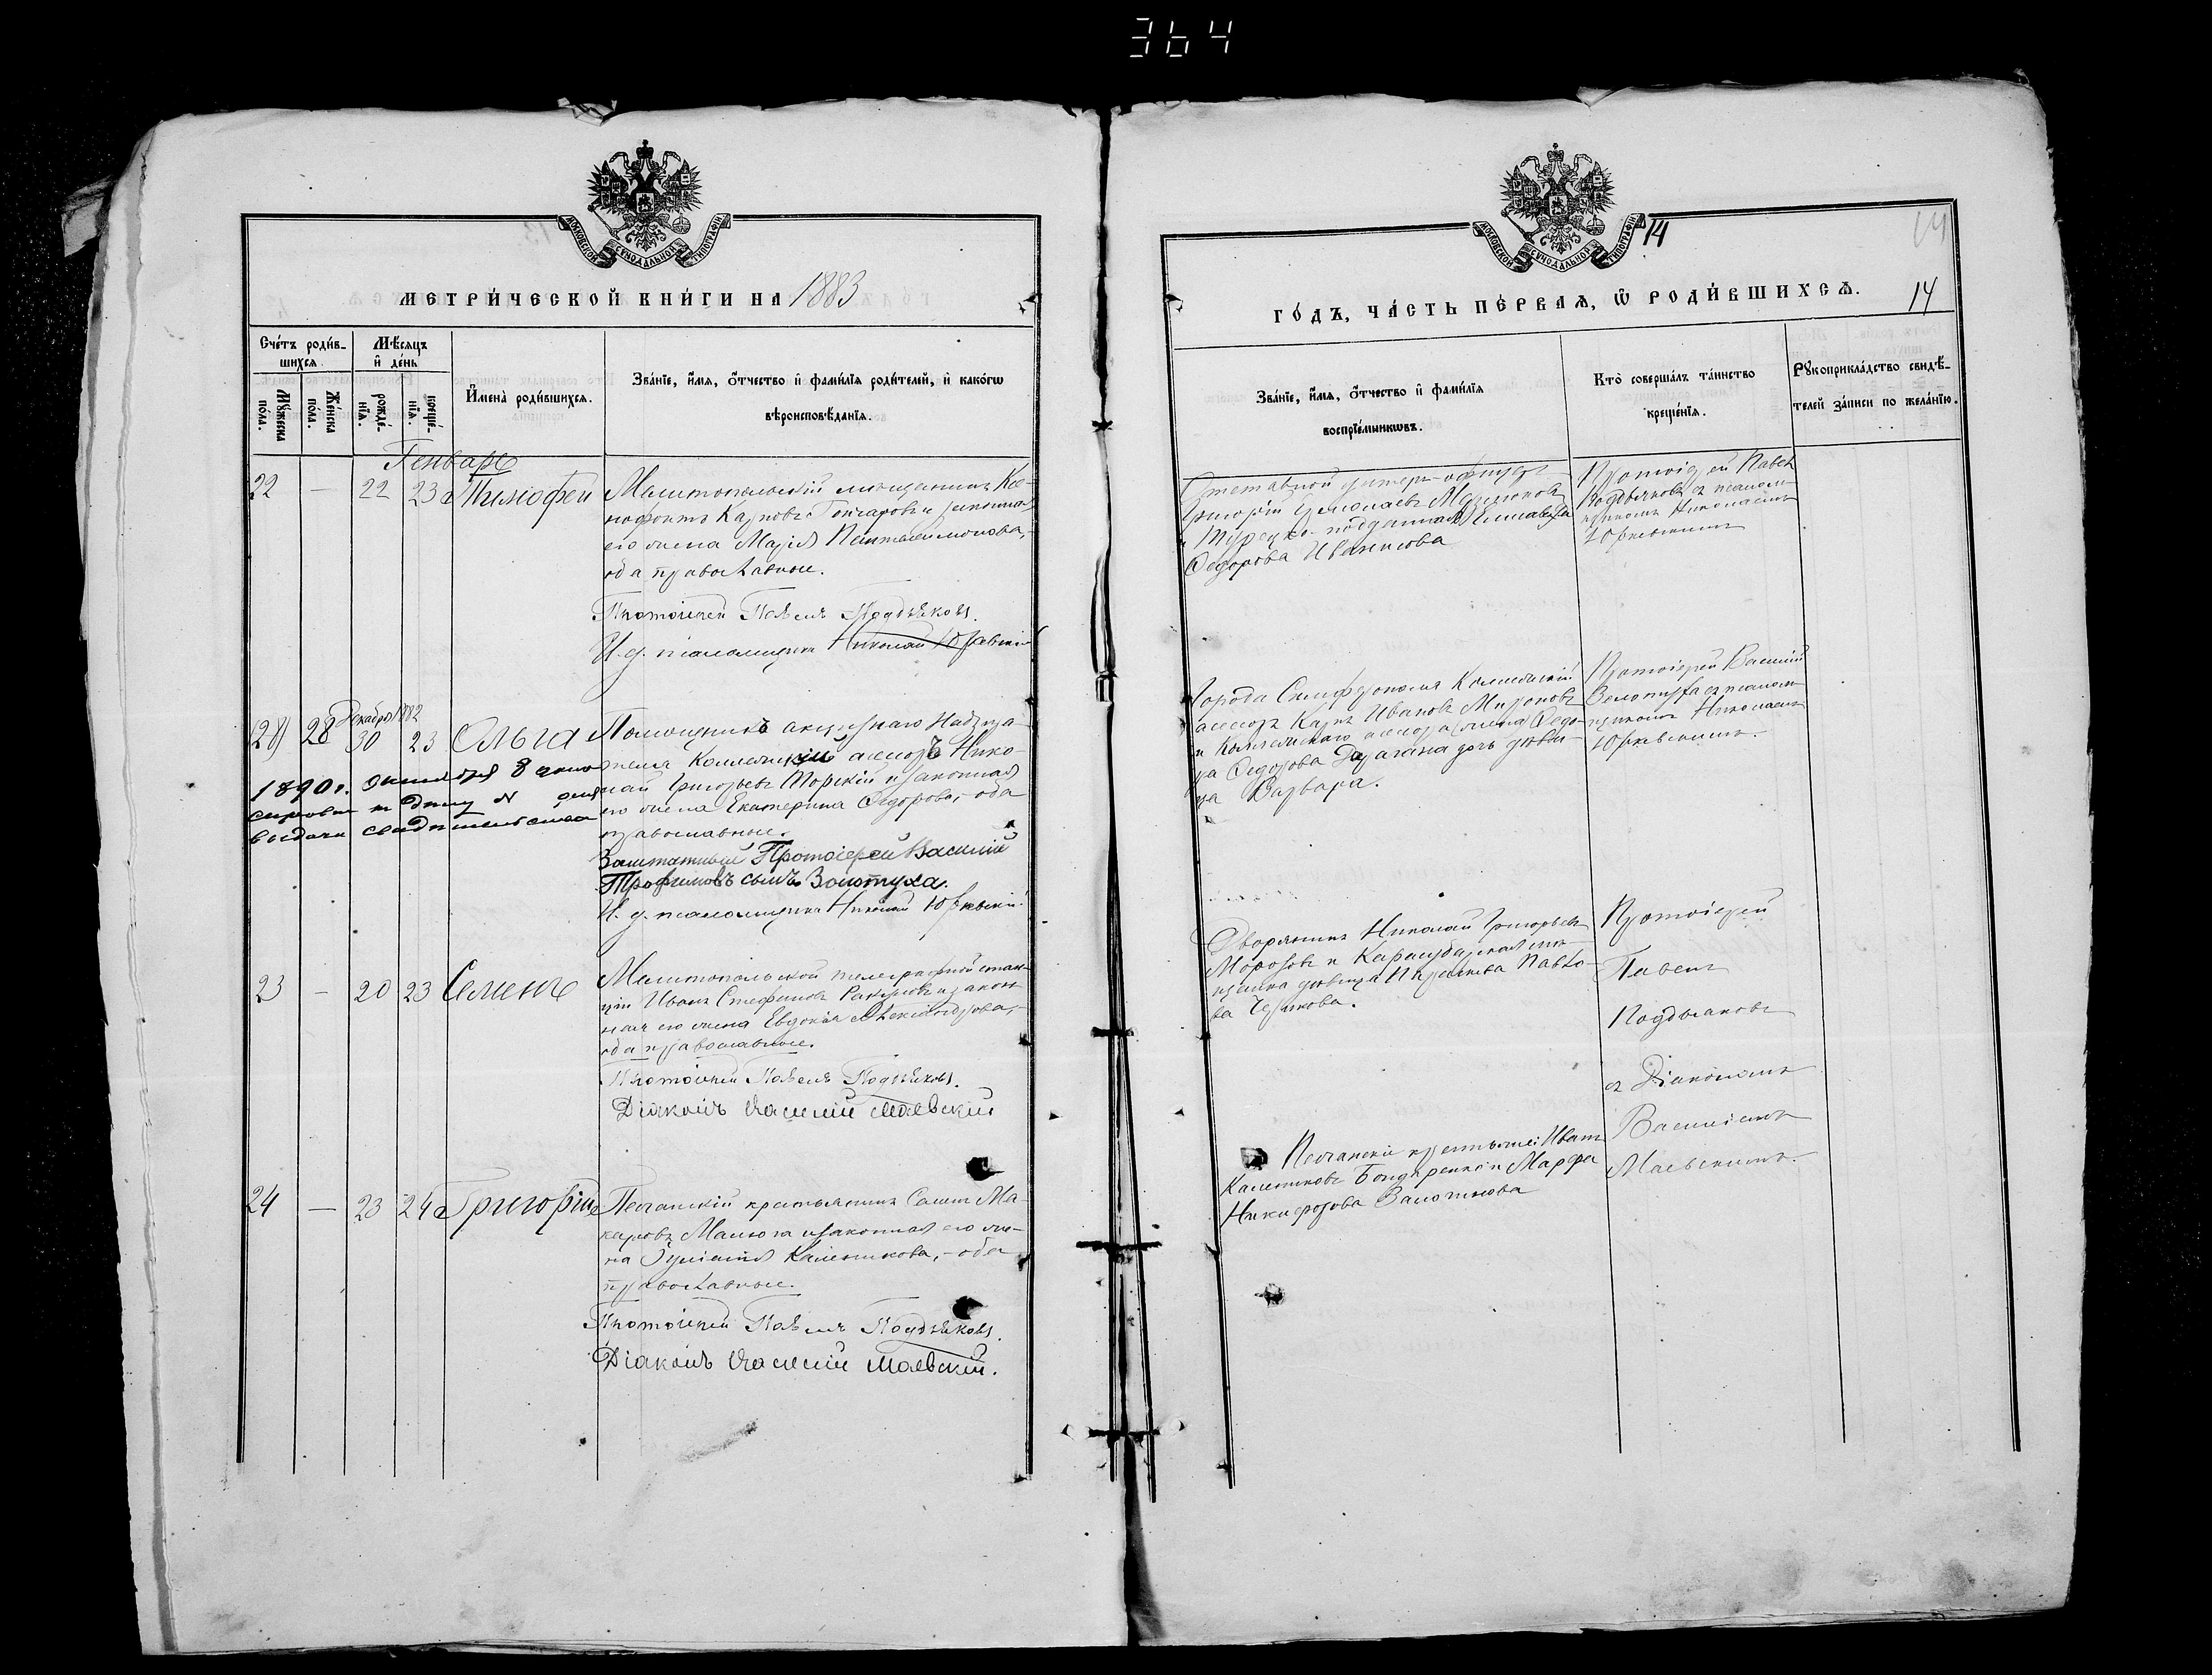 364
МОСКОВСКОЙ СѴНОДАЛЬНОЙ ТИПОГРАФІИ
МЕТРИ́ЧЕСКОЙ КНИ́ГИ НА 1883
Сче́тъ роди́в-
шихсѧ
Мѣ́сѧцъ
и҆ де́нь
Мꙋ́жеска
по́ла.
Же́нска
по́ла.
рожде́-
нїѧ.
креще́-
нїѧ.
И҆мена̀ роди́вшихсѧ.
Зва́нїе, и҆́мѧ, ѻ҆́тчество и҆ фами́лїѧ роди́телей, и҆ како́гѡ
вѣроисповѣ́данїѧ.
Генварь
22 — 22 23 Тимофей
Мелитопольскій мещанинъ Ксе-
нофонтъ Карповъ Гончаровъ и законная
его жена Марія Пантелеимонова,
оба православные.
Протоіерей Павелъ Поддьяковъ.
И. д. псаломщика Николай Юрьевскій
Декабря 1882
(28) 28 30 23 Ольга
Помощникъ акцизнаго Надзира-
теля Коллежскій ассесоръ Нико-
лай Григорьевъ Морскій и законная
его жена Екатерина Ѳедорова, - оба
православные.
1890 г. октября 8
къ дѣлу N
выдачи свидѣтельства
Заштатный Протоіерей Василій
Трофимовъ сынъ Золотуха.
И. д. псаломщика Николай Юрьевскій
23 — 20 23 Семенъ
Мелитопольской телеграфной стан-
ціи Иванъ Стефановъ и закон-
ная его жена Евдокія Александрова, -
оба православные.
Протоіерей Павелъ Поддьяковъ.
Діаконъ Василій Маевскій
24 — 23 24 Григорій
Песчанскій крестьянинъ Ма-
каровъ Малюга и законная его же-
на Каленикова, - оба
православные.
Протоіерей Павелъ Поддьяковъ.
Діаконъ Василій Маевскій.
МОСКОВСКОЙ СѴНОДАЛЬНОЙ ТИПОГРАФІИ
14
14
ГО́ДЪ, ЧА́СТЬ ПЕ́РВАѦ, Ѽ РОДИ́ВШИХСѦ.
14
Зва́нїе, и҆́мѧ, ѻ҆́тчество и҆ фами́лїѧ
воспрїе́мникѡвъ.
Кто̀ соверша́лъ та́инство
креще́нїѧ.
Рꙋкоприкла́дство свидѣ́-
телей за́писи по жела́нїю.
Отставной унтеръ-офицеръ
Григорій Ермолаевъ
и Турецко-подданная Елисавета
Ѳедорова Иванисова
Протоіерей Павелъ
Поддьяковъ съ псалом-
щикомъ Николаемъ
Юрьевскимъ
Города Симферополя Коллежскій
ассесоръ Карпъ Ивановъ Мироновъ
и Коллежскаго ассесора Ѳедо-
ра Ѳедорова дочь дѣви-
ца Варвара.
Протоіерей Василій
Золотуха съ псалом-
щикомъ Николаемъ
Юрьевскимъ.
Дворянинъ Николай Григорьевъ
Морозовъ и Карасубазарская мѣ-
щанка дѣвица Павло-
ва
Протоіерей
Павелъ
Поддьяковъ
съ Діакономъ
Василіемъ
Маевскимъ.
Песчанскіе крестьяне: Иванъ
Калениковъ Бондаренко и Марфа
Никифорова